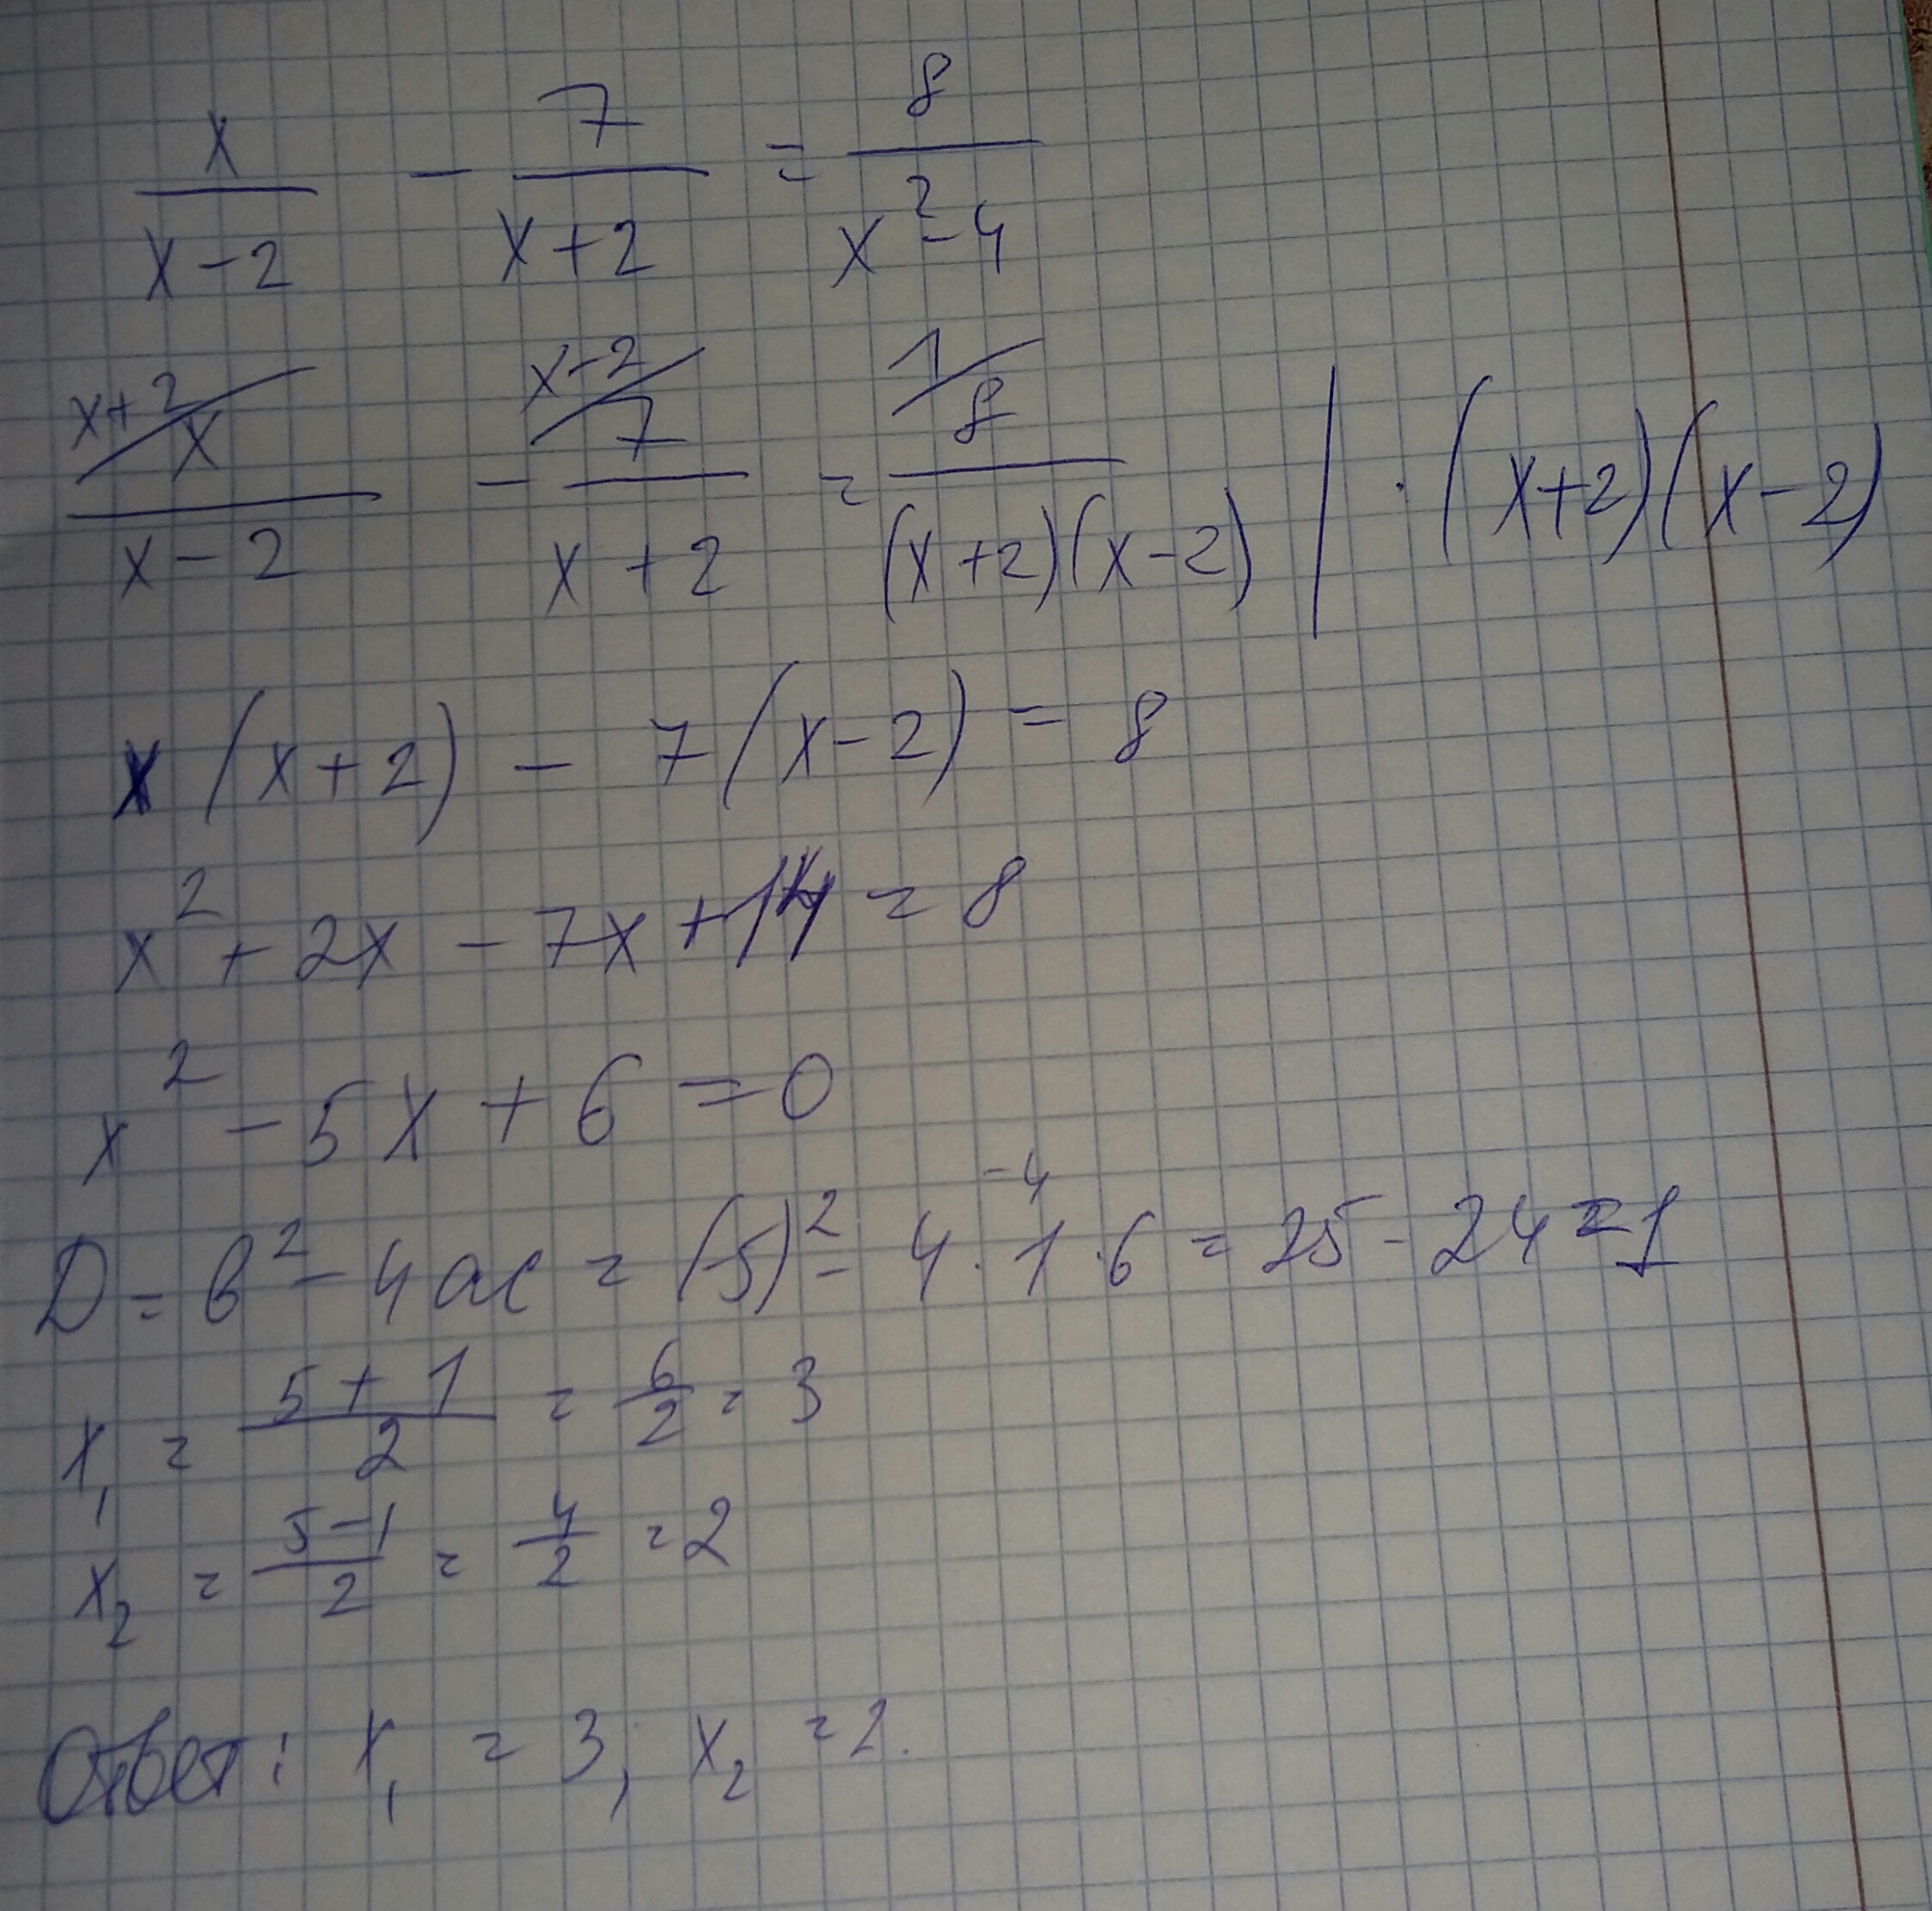 x/(x-2) - 7/(x+2) = 8/(x²-4)
x+2/ x/(x-2) - x-2/ 7/(x+2) = 1/ 8/((x+2)(x-2)) | · (x+2)(x-2)
x(x+2) - 7(x-2) = 8
x² + 2x - 7x + 14 = 8
x² - 5x + 6 = 0
D = b² - 4ac = (-5)² - 4 · 1 · 6 = 25 - 24 = 1
-4
x₁ = (5+1)/2 = 6/2 = 3
x₂ = (5-1)/2 = 4/2 = 2
Ответ: x₁ = 3; x₂ = 2.